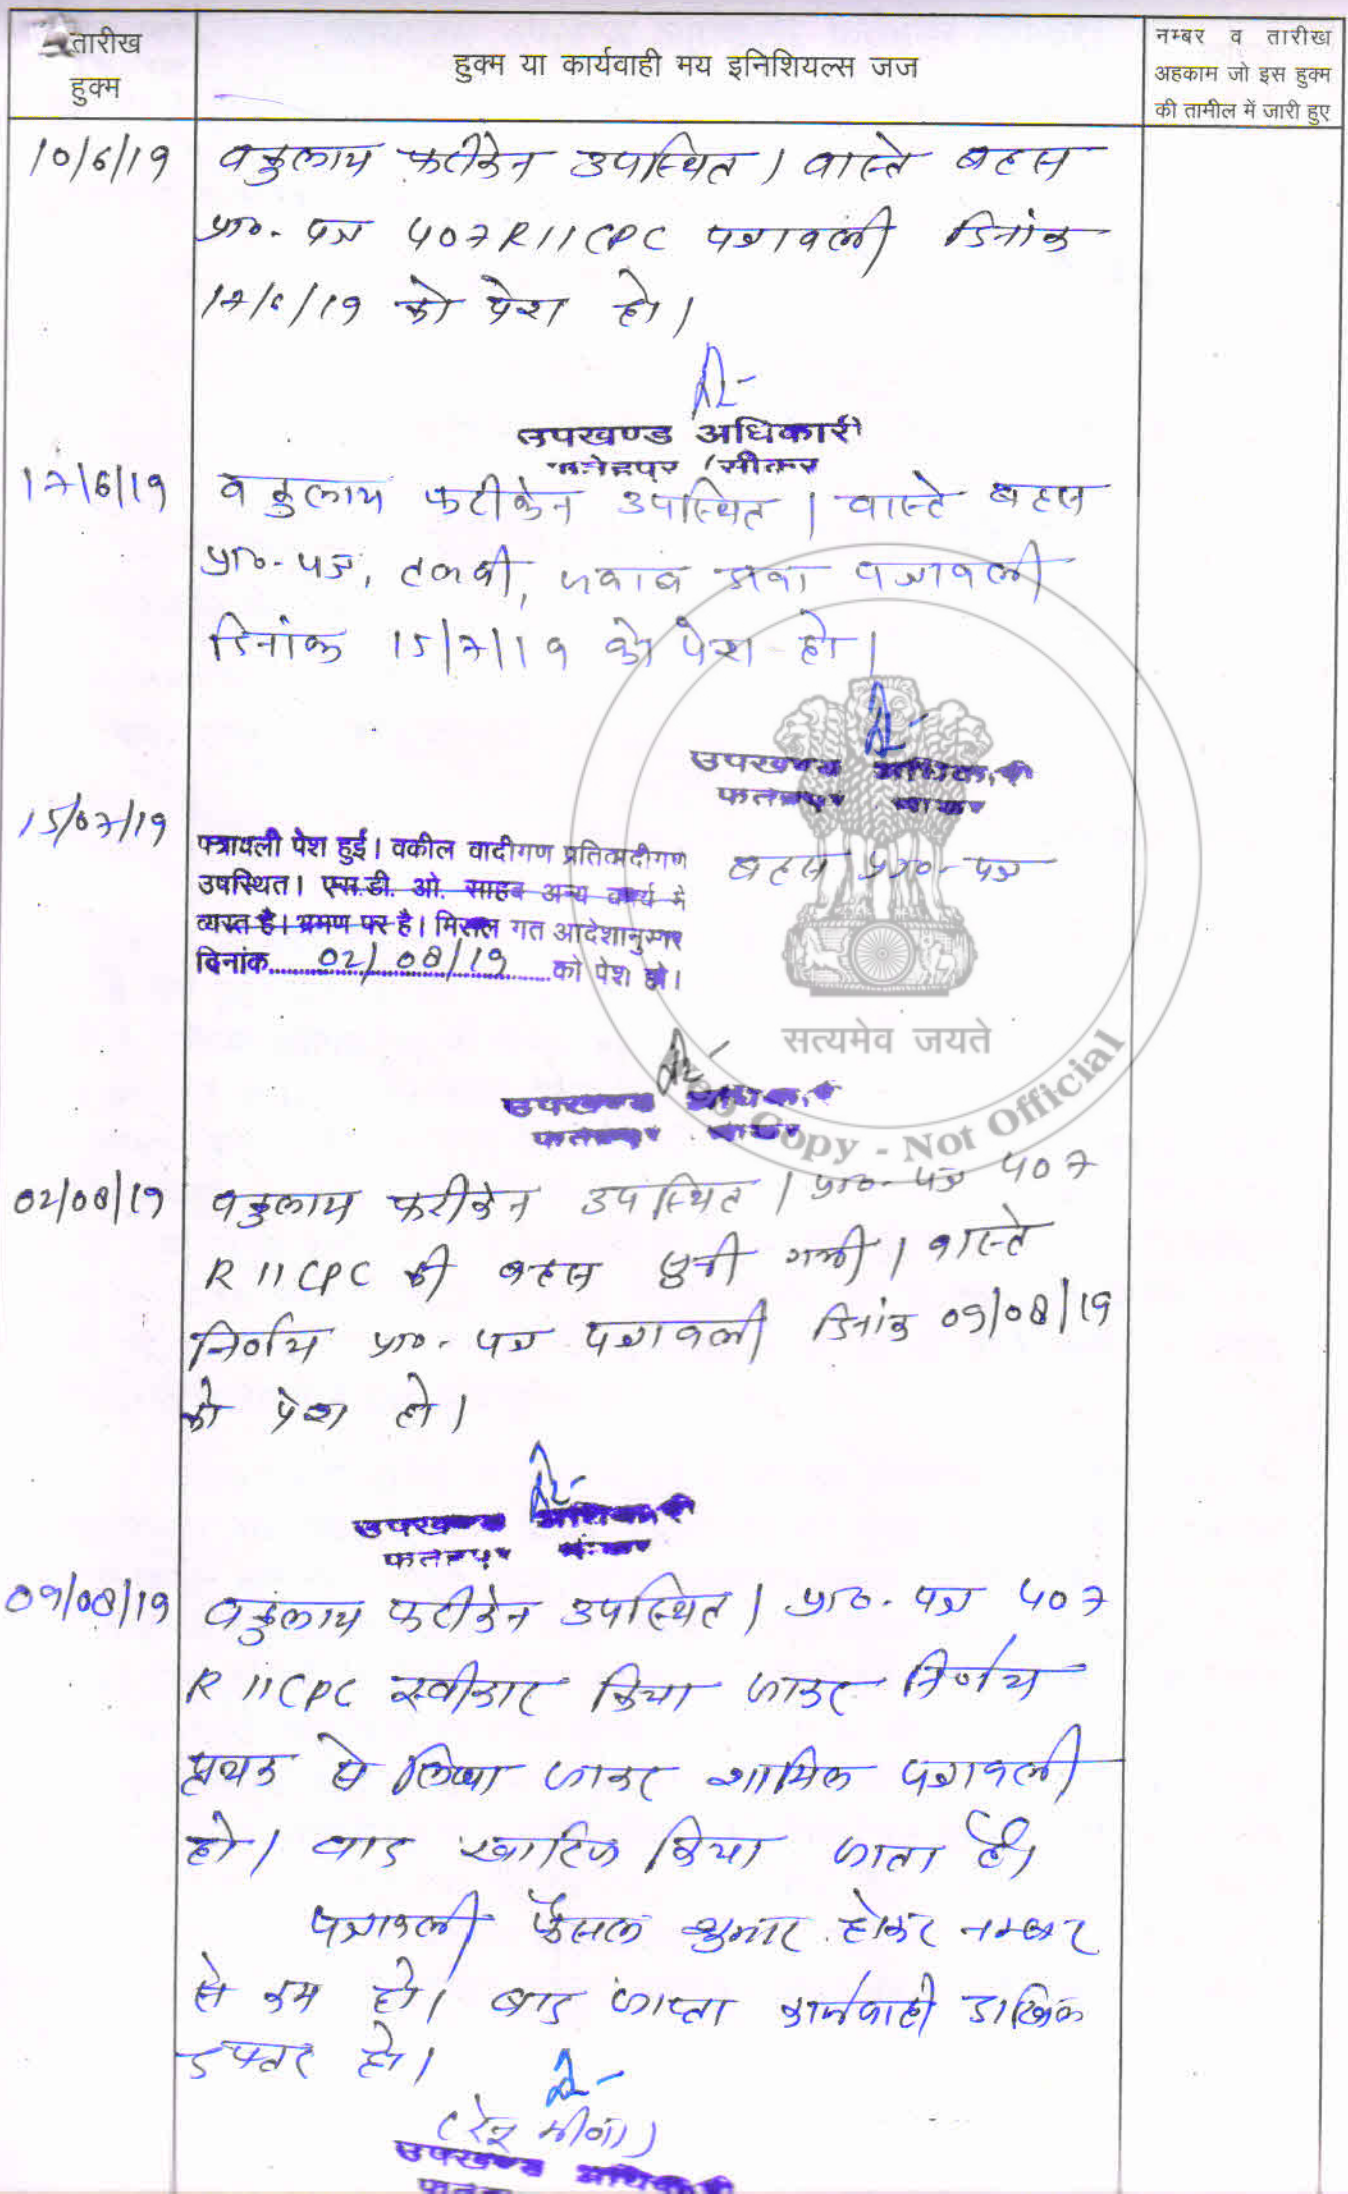 तारीख
हुक्म
हुक्म या कार्यवाही मय इनिशियल्स जज
नम्बर व तारीख
अहकाम जो इस हुक्म
की तामील में जारी हुए
10/6/19 वकुलाय फरीकेन उपस्थित। वास्ते बहस
प्रा०-पत्र 407R11CPC पत्रावली दिनांक
17/6/19 को पेश हो।
उपखण्ड अधिकारी
फतेहपुर (सीकर
17/6/19 वकुलाय फरीकेन उपस्थित। वास्ते बहस
प्रा०-पत्र, तलबी, जवाब दावा पत्रावली
दिनांक 15/7/19 को पेश हो।
उपखण्ड अधिकारी
15/07/19
पत्रावली पेश हुई। वकील वादीगण प्रतिवादीगण
बहस प्रा०-पत्र
उपस्थित। एस.डी. ओ. साहब अन्य कार्य में
व्यस्त है। भ्रमण पर है। मिसल गत आदेशानुसार
दिनांक 02/08/19 को पेश हो।
सत्यमेव जयते
Copy - Not Official
उपखण्ड अधिकारी
02/08/19 वकुलाय फरीकेन उपस्थित। प्रा०-पत्र 407
R11CPC की बहस सुनी गयी। वास्ते
निर्णय प्रा०-पत्र पत्रावली दिनांक 09/08/19
को पेश हो।
उपखण्ड अधिकारी
09/08/19 वकुलाय फरीकेन उपस्थित। प्रा०-पत्र 407
R11CPC स्वीकार किया जाकर निर्णय
प्रथक से लिखा जाकर शामिल पत्रावली
हो। वाद खारिज किया जाता है।
पत्रावली फैसल शुमार होकर नम्बर
से कम हो। बाद जाप्ता कार्यवाही दाखिल
दफ्तर हो।
(रेणु मीणा)
उपखण्ड अधिकारी